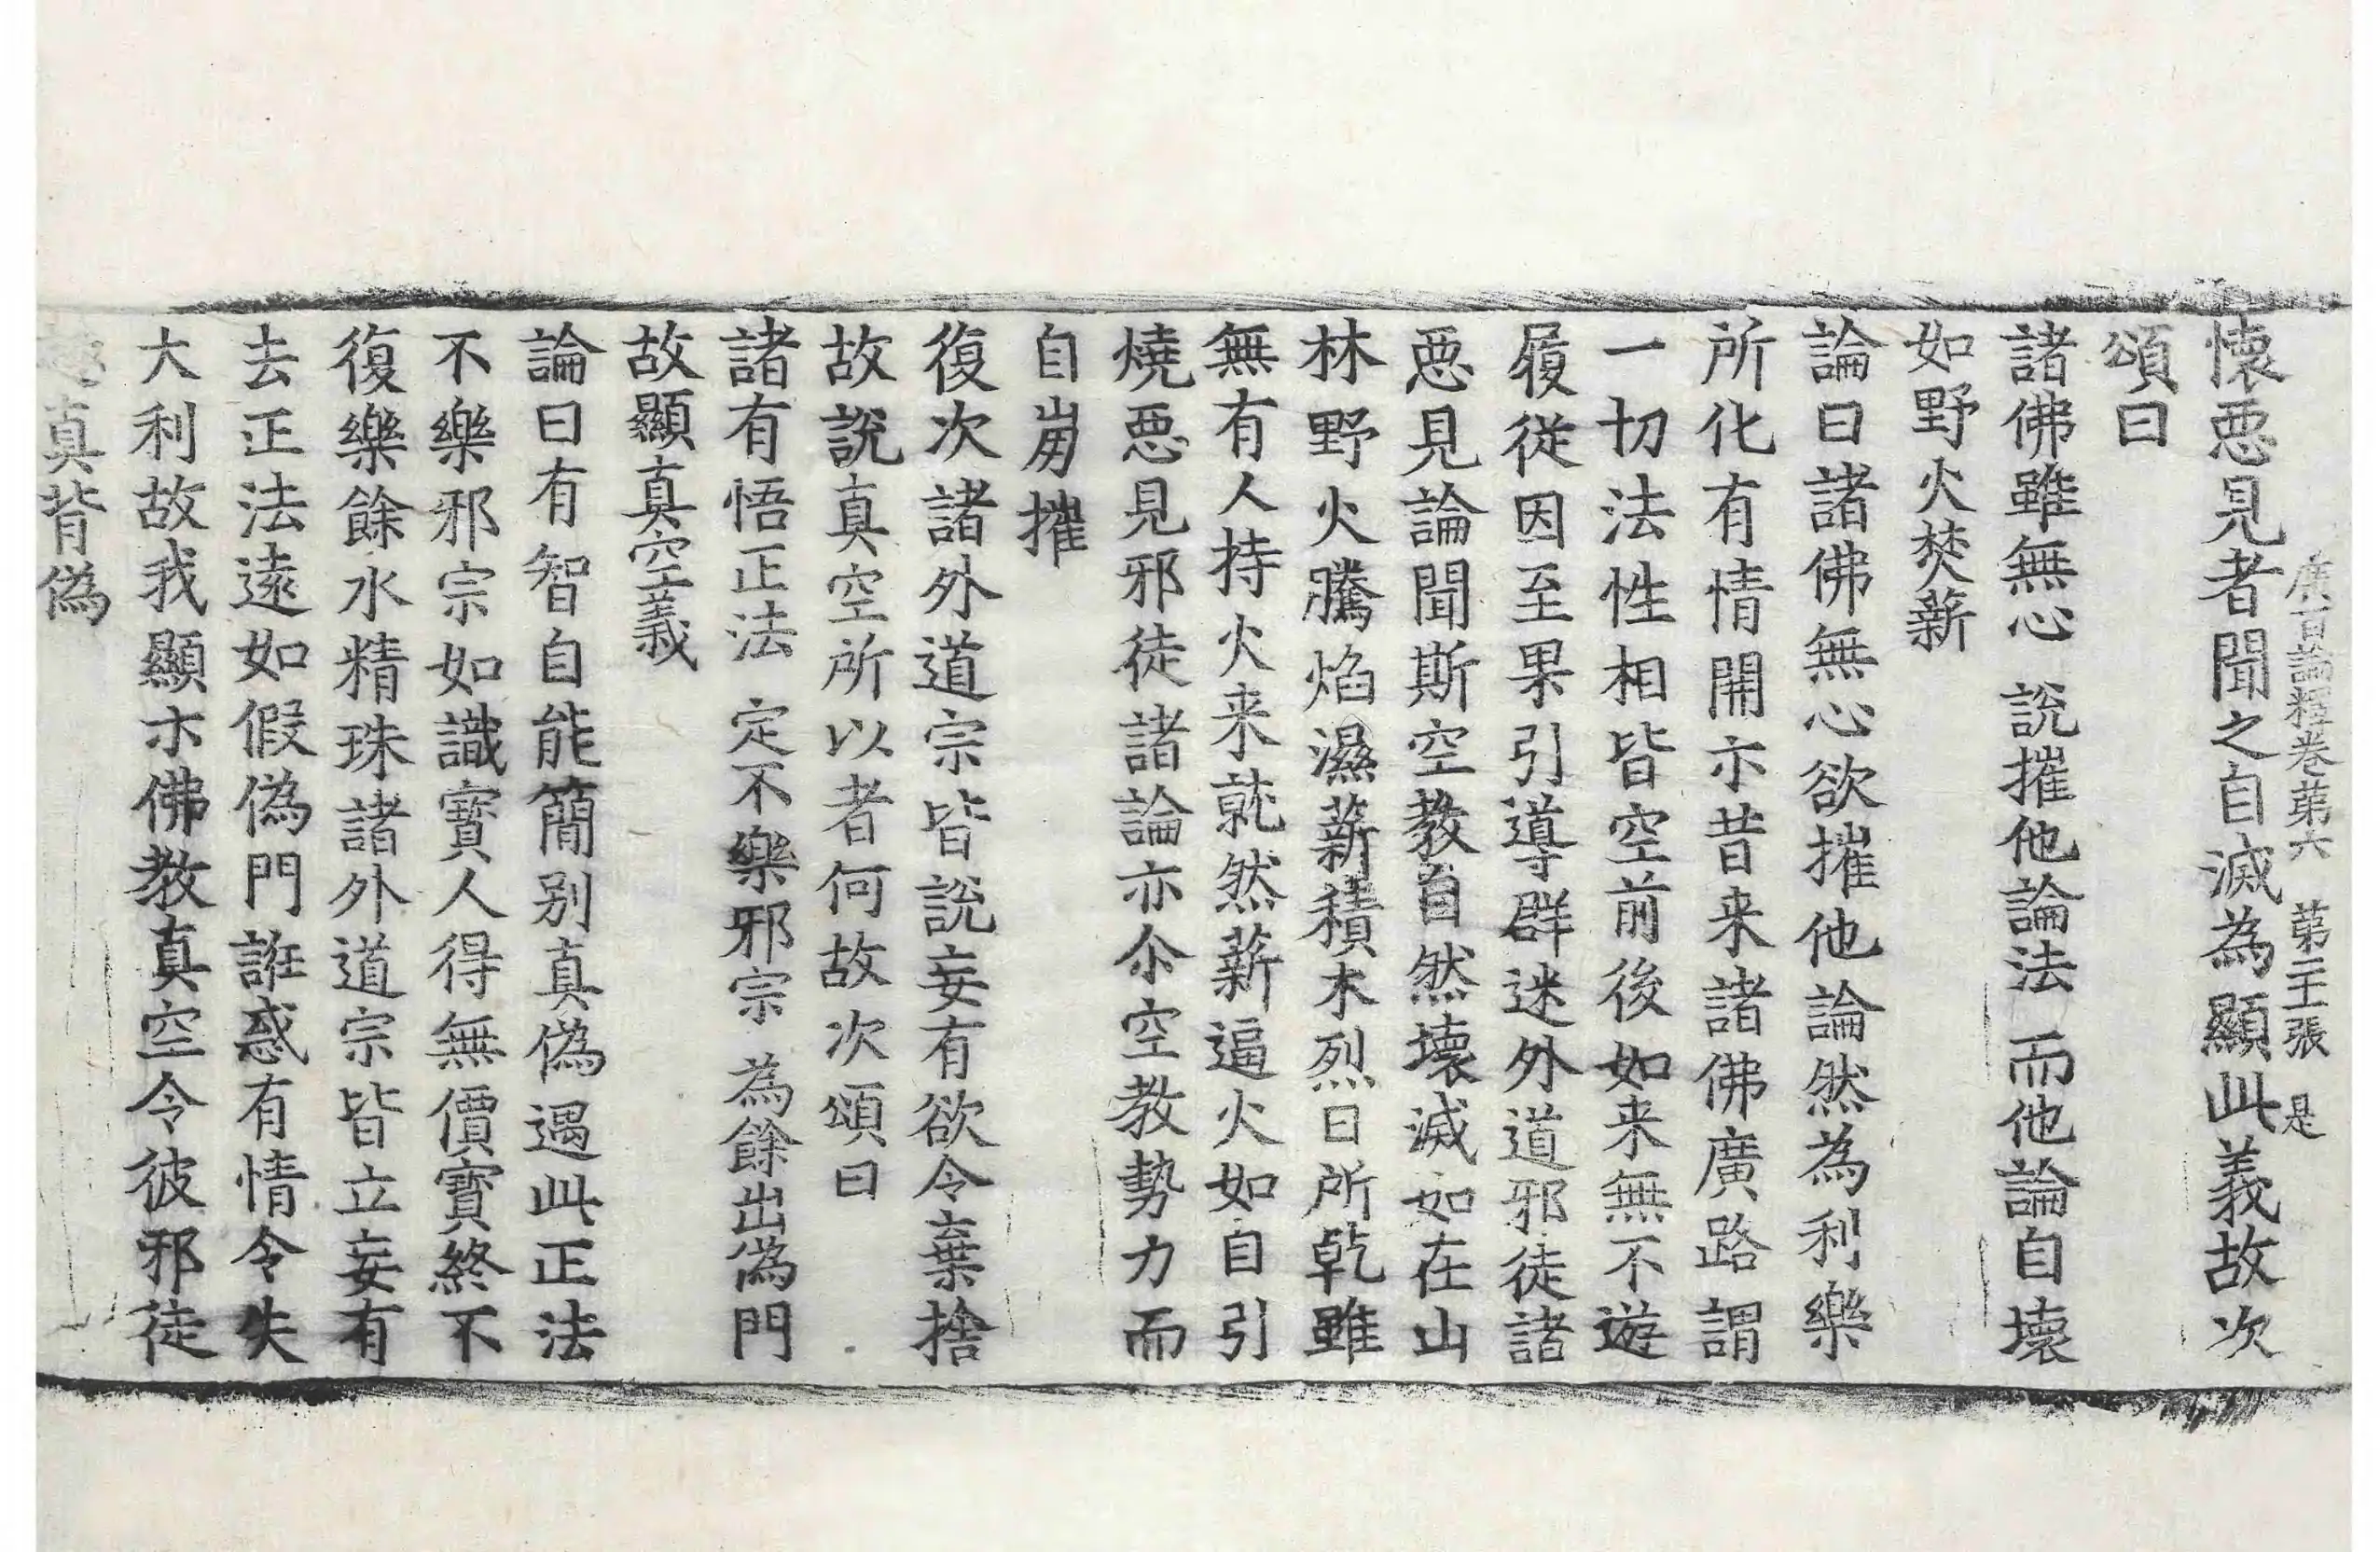 廣百論釋卷第六 第二十張 是
懷惡見者聞之自滅為顯此義故次
頌曰
諸佛雖無心 說摧他論法 而他論自壞
如野火焚薪
論曰諸佛無心欲摧他論然為利樂
所化有情開示昔来諸佛廣路謂
一切法性相皆空前後如来無不遊
履從因至果引導群迷外道邪徒諸
惡見論聞斯空教自然壞滅如在山
林野火騰焰濕薪積木烈日所乾雖
無有人持火来就然薪逼火如自引
燒惡見邪徒諸論亦尒空教勢力而
自崩摧
復次諸外道宗皆說妄有欲令棄捨
故說真空所以者何故次頌曰
諸有悟正法 定不樂邪宗 為餘出偽門
故顯真空義
論曰有智自能簡別真偽遇此正法
不樂邪宗如識寶人得無價寶終不
復樂餘水精珠諸外道宗皆立妄有
去正法遠如假偽門誑惑有情令失
大利故我顯示佛教真空令彼邪徒
真背偽